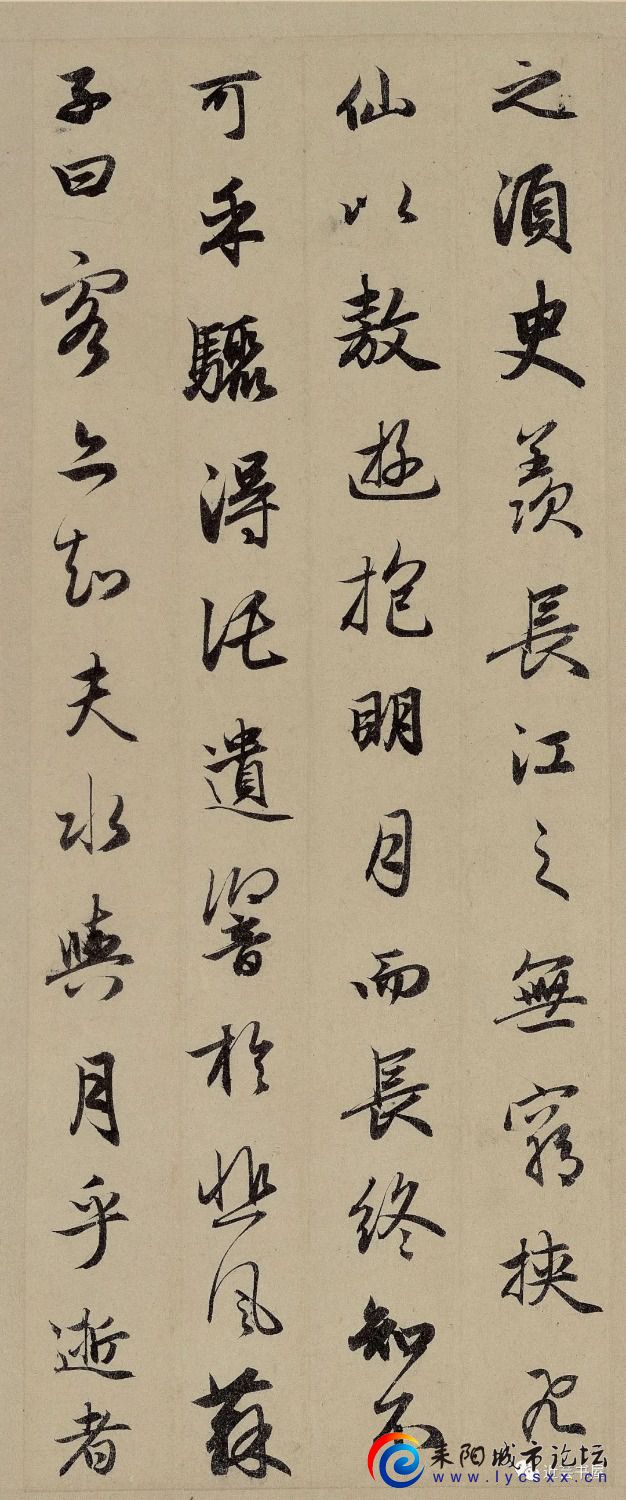 之須臾羨長江之無窮挾飛
仙以敖遊抱明月而長終知不
可乎驟得託遺響於悲風蘇
子曰客亦知夫水與月乎逝者
耒阳城市论坛
www.lycsxx.cn